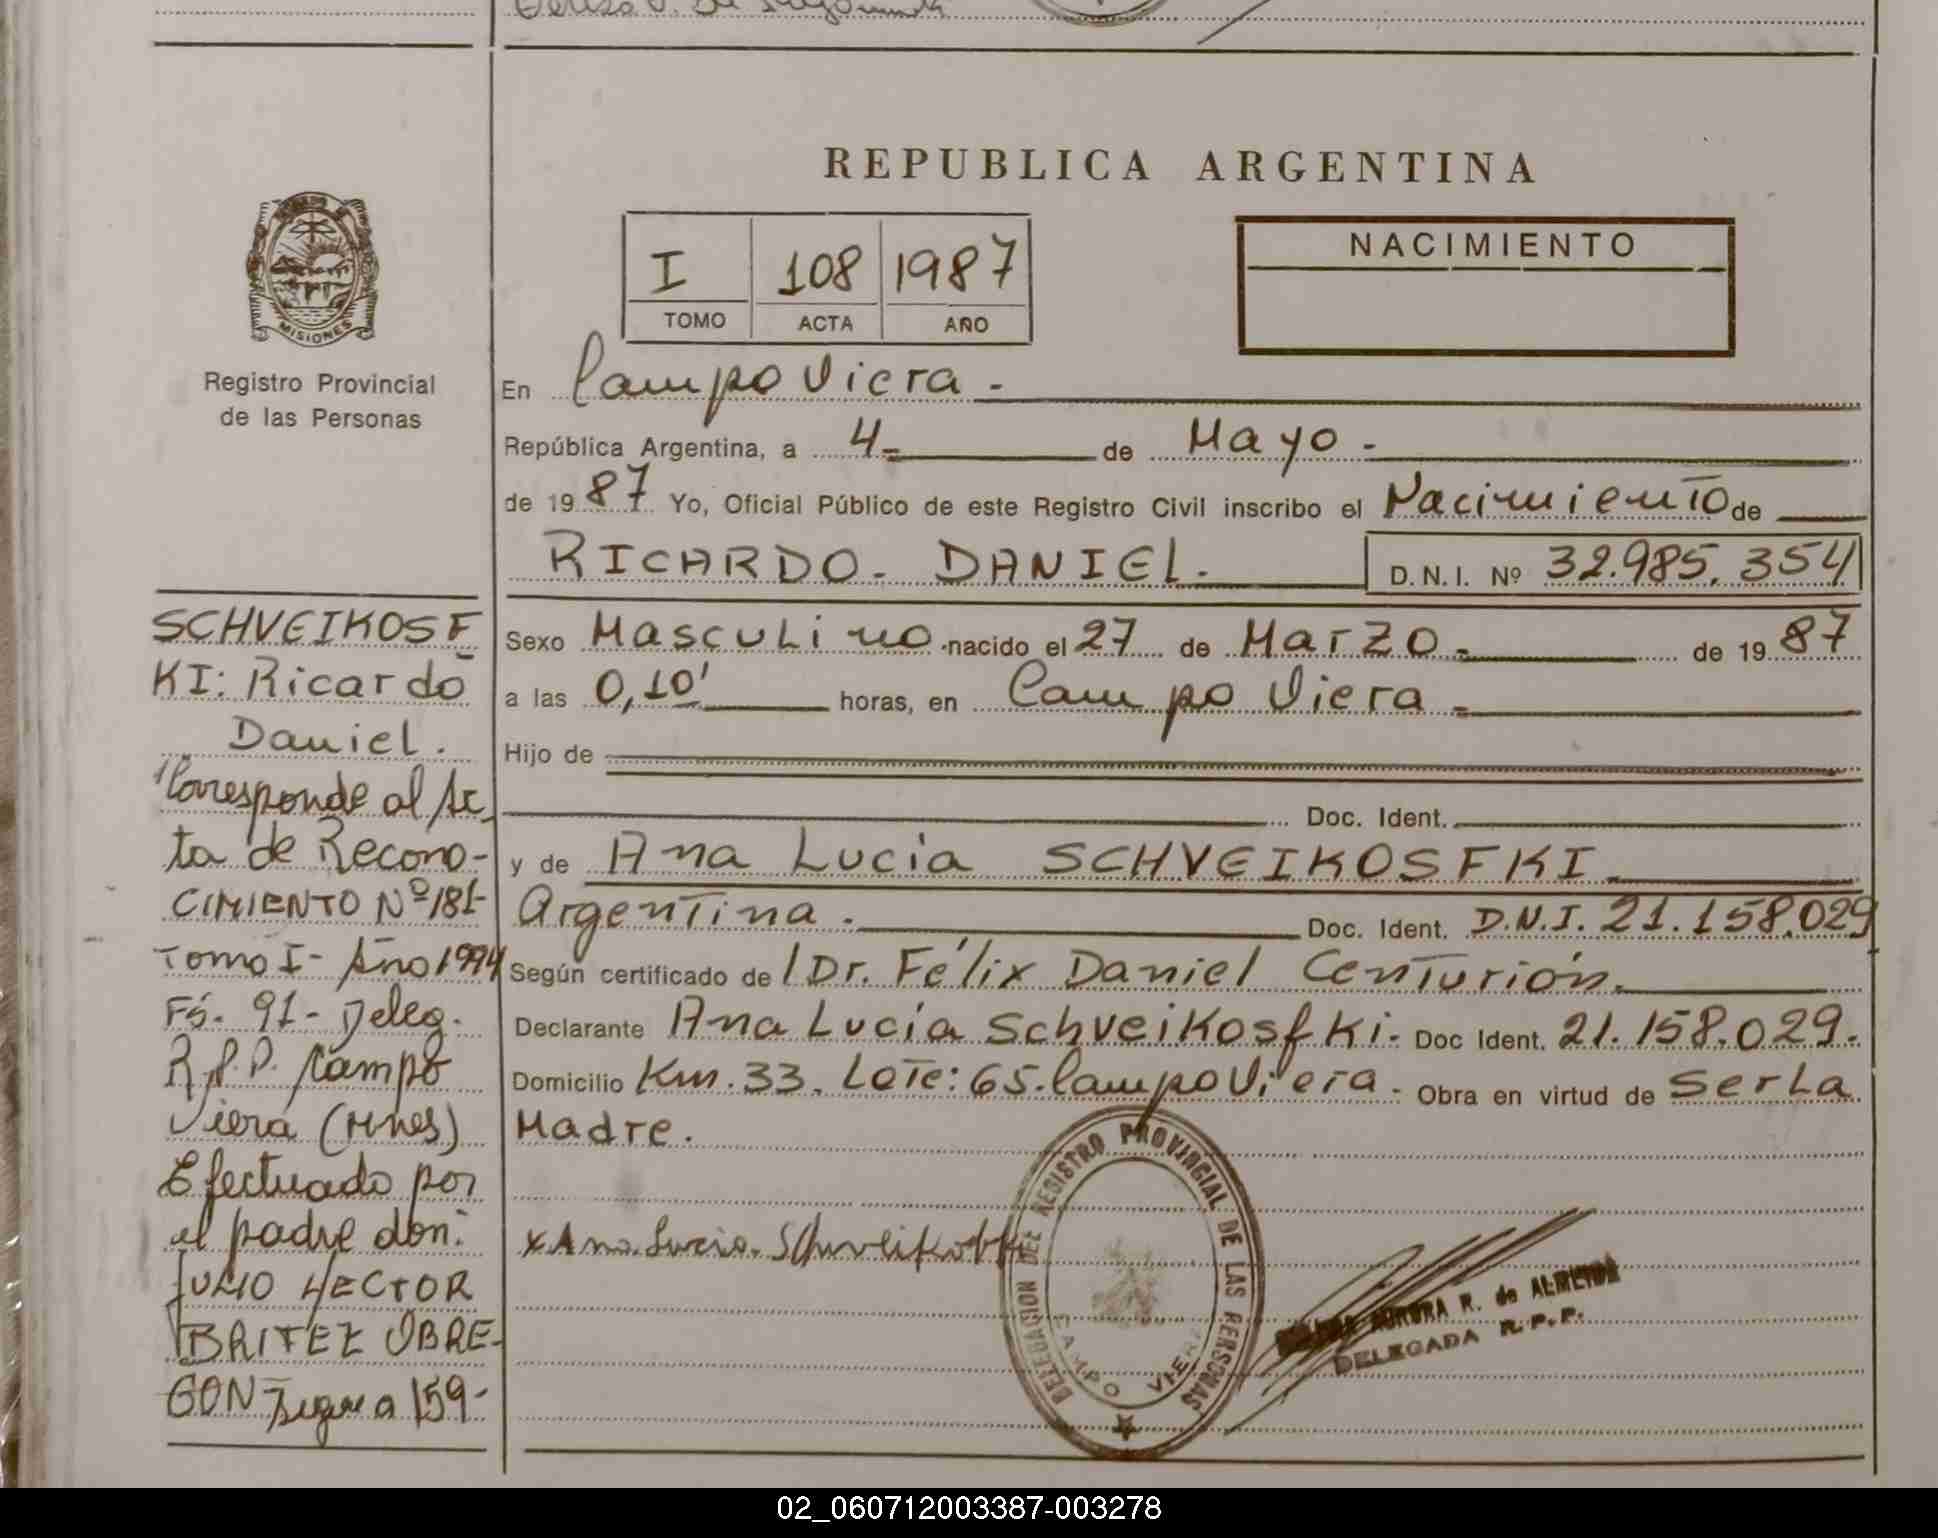 REPUBLICA ARGENTINA
MISIONES
Registro Provincial
de las Personas
I 108 1987
TOMO ACTA AÑO
NACIMIENTO
En Campo Viera -
República Argentina, a 4 de Mayo -
de 1987 Yo, Oficial Público de este Registro Civil inscribo el Nacimiento de
RICARDO - DANIEL - D.N.I. Nº 32.985.354
Sexo Masculino nacido el 27 de Marzo - de 1987
a las 0,10' horas, en Campo Viera -
Hijo de
Doc. Ident.
y de Ana Lucia SCHVEIKOSFKI
Argentina - Doc. Ident. D.N.I. 21.158.029
Según certificado de Dr. Félix Daniel Centurión.
Declarante Ana Lucia Schveikosfki - Doc Ident. 21.158.029.
Domicilio Km. 33. Lote: 65. Campo Viera - Obra en virtud de Ser La
Madre.
SCHVEIKOSF
KI: Ricardo
Daniel.
Corresponde al Ac
ta de Recono-
CIMIENTO Nº 181-
Tomo I - Año 1994
Fs. 91 - Deleg.
R.P.P. Campo
Viera (Mnes)
Efectuado por
el padre don:
JULIO HECTOR
BRITEZ OBRE-
GON sigue a 159-
x Ana Lucia Schveikosfki
DELEGACION DEL REGISTRO PROVINCIAL DE LAS PERSONAS
CAMPO VIERA
AURORA R. de ALMEIDA
DELEGADA R.P.P.
02_060712003387-003278